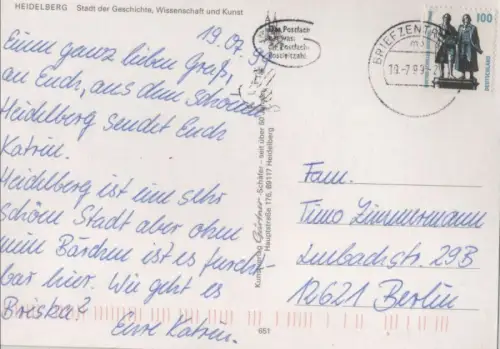 HEIDELBERG Stadt der Geschichte, Wissenschaft und Kunst
19.07.99
Einen ganz lieben Gruß,
an Euch, aus dem schönen
Heidelberg sendet Euch
Katrin.
Heidelberg ist eine sehr
schöne Stadt aber ohne
mein Bärchen ist es furcht-
bar hier. Wie geht es
Briska?
Eure Katrin.
Schäfer - seit über 90
Hauptstraße 176, 69117 Heidelberg
651
BRIEFZENTR
19.-7.99
100
DEUTSCHLAND
Fam.
Timo Zimmermann
29B
12621 Berlin